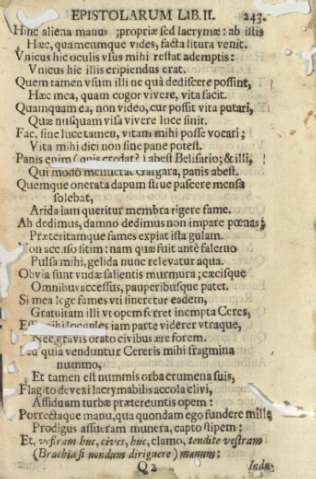 EPISTOLARUM LIB. II. 243.
Hinc aliena manus; propriæ sed lacrymæ: ab istis
Hæc, quamcumque vides, facta litura venit.
Vnicus hic oculis vsus mihi restat ademptis:
Vnicus hic illis eripiendus erat.
Quem tamen vsum illi ne quà dediscere possint,
Hæc mea, quam cogor vivere, vita facit.
Quamquam ea, non video, cur possit vita putari,
Quæ nusquam visa vivere luce sinit.
Fac, sine luce tamen, vitam mihi posse vocari;
Vita mihi dici non sine pane potest.
Panis enim (quis credat?) abest Belisario; & illi,
Qui modò Gargara, panis abest.
Quemque onerata dapum strue pascere mensa
solebat,
Arida iam queritur membra rigere fame.
Ah dedimus, damno dedimus non impare pœnas;
Præteritamque fames expiat ista gulam.
Non accuso sitim: nam quæ fuit antè falerno
Pulsa mihi, gelida nunc relevatur aqua.
Obvia sunt vndæ salientis murmura; cæcisque
Omnibus accessus, pauperibusque patet.
Si mea lege fames vti sineretur eadem,
Gratuitam illi vt opem ferret inempta Ceres,
iam parte viderer vtraque,
Nec gravis orato civibus ære forem.
quia venduntur Cereris mihi fragmina
nummo,
Et tamen est nummis orba crumena suis,
Flagito devexi lacrymabilis accola clivi,
Assiduam turbæ prætereuntis opem:
Porrectaque manu, qua quondam ego fundere mille
Prodigus assueram munera, capto stipem:
Et, vestram huc, cives, huc, clamo, tendite vestram
(Brachia si nondum diriguere) manum:
Q 2 Indu-